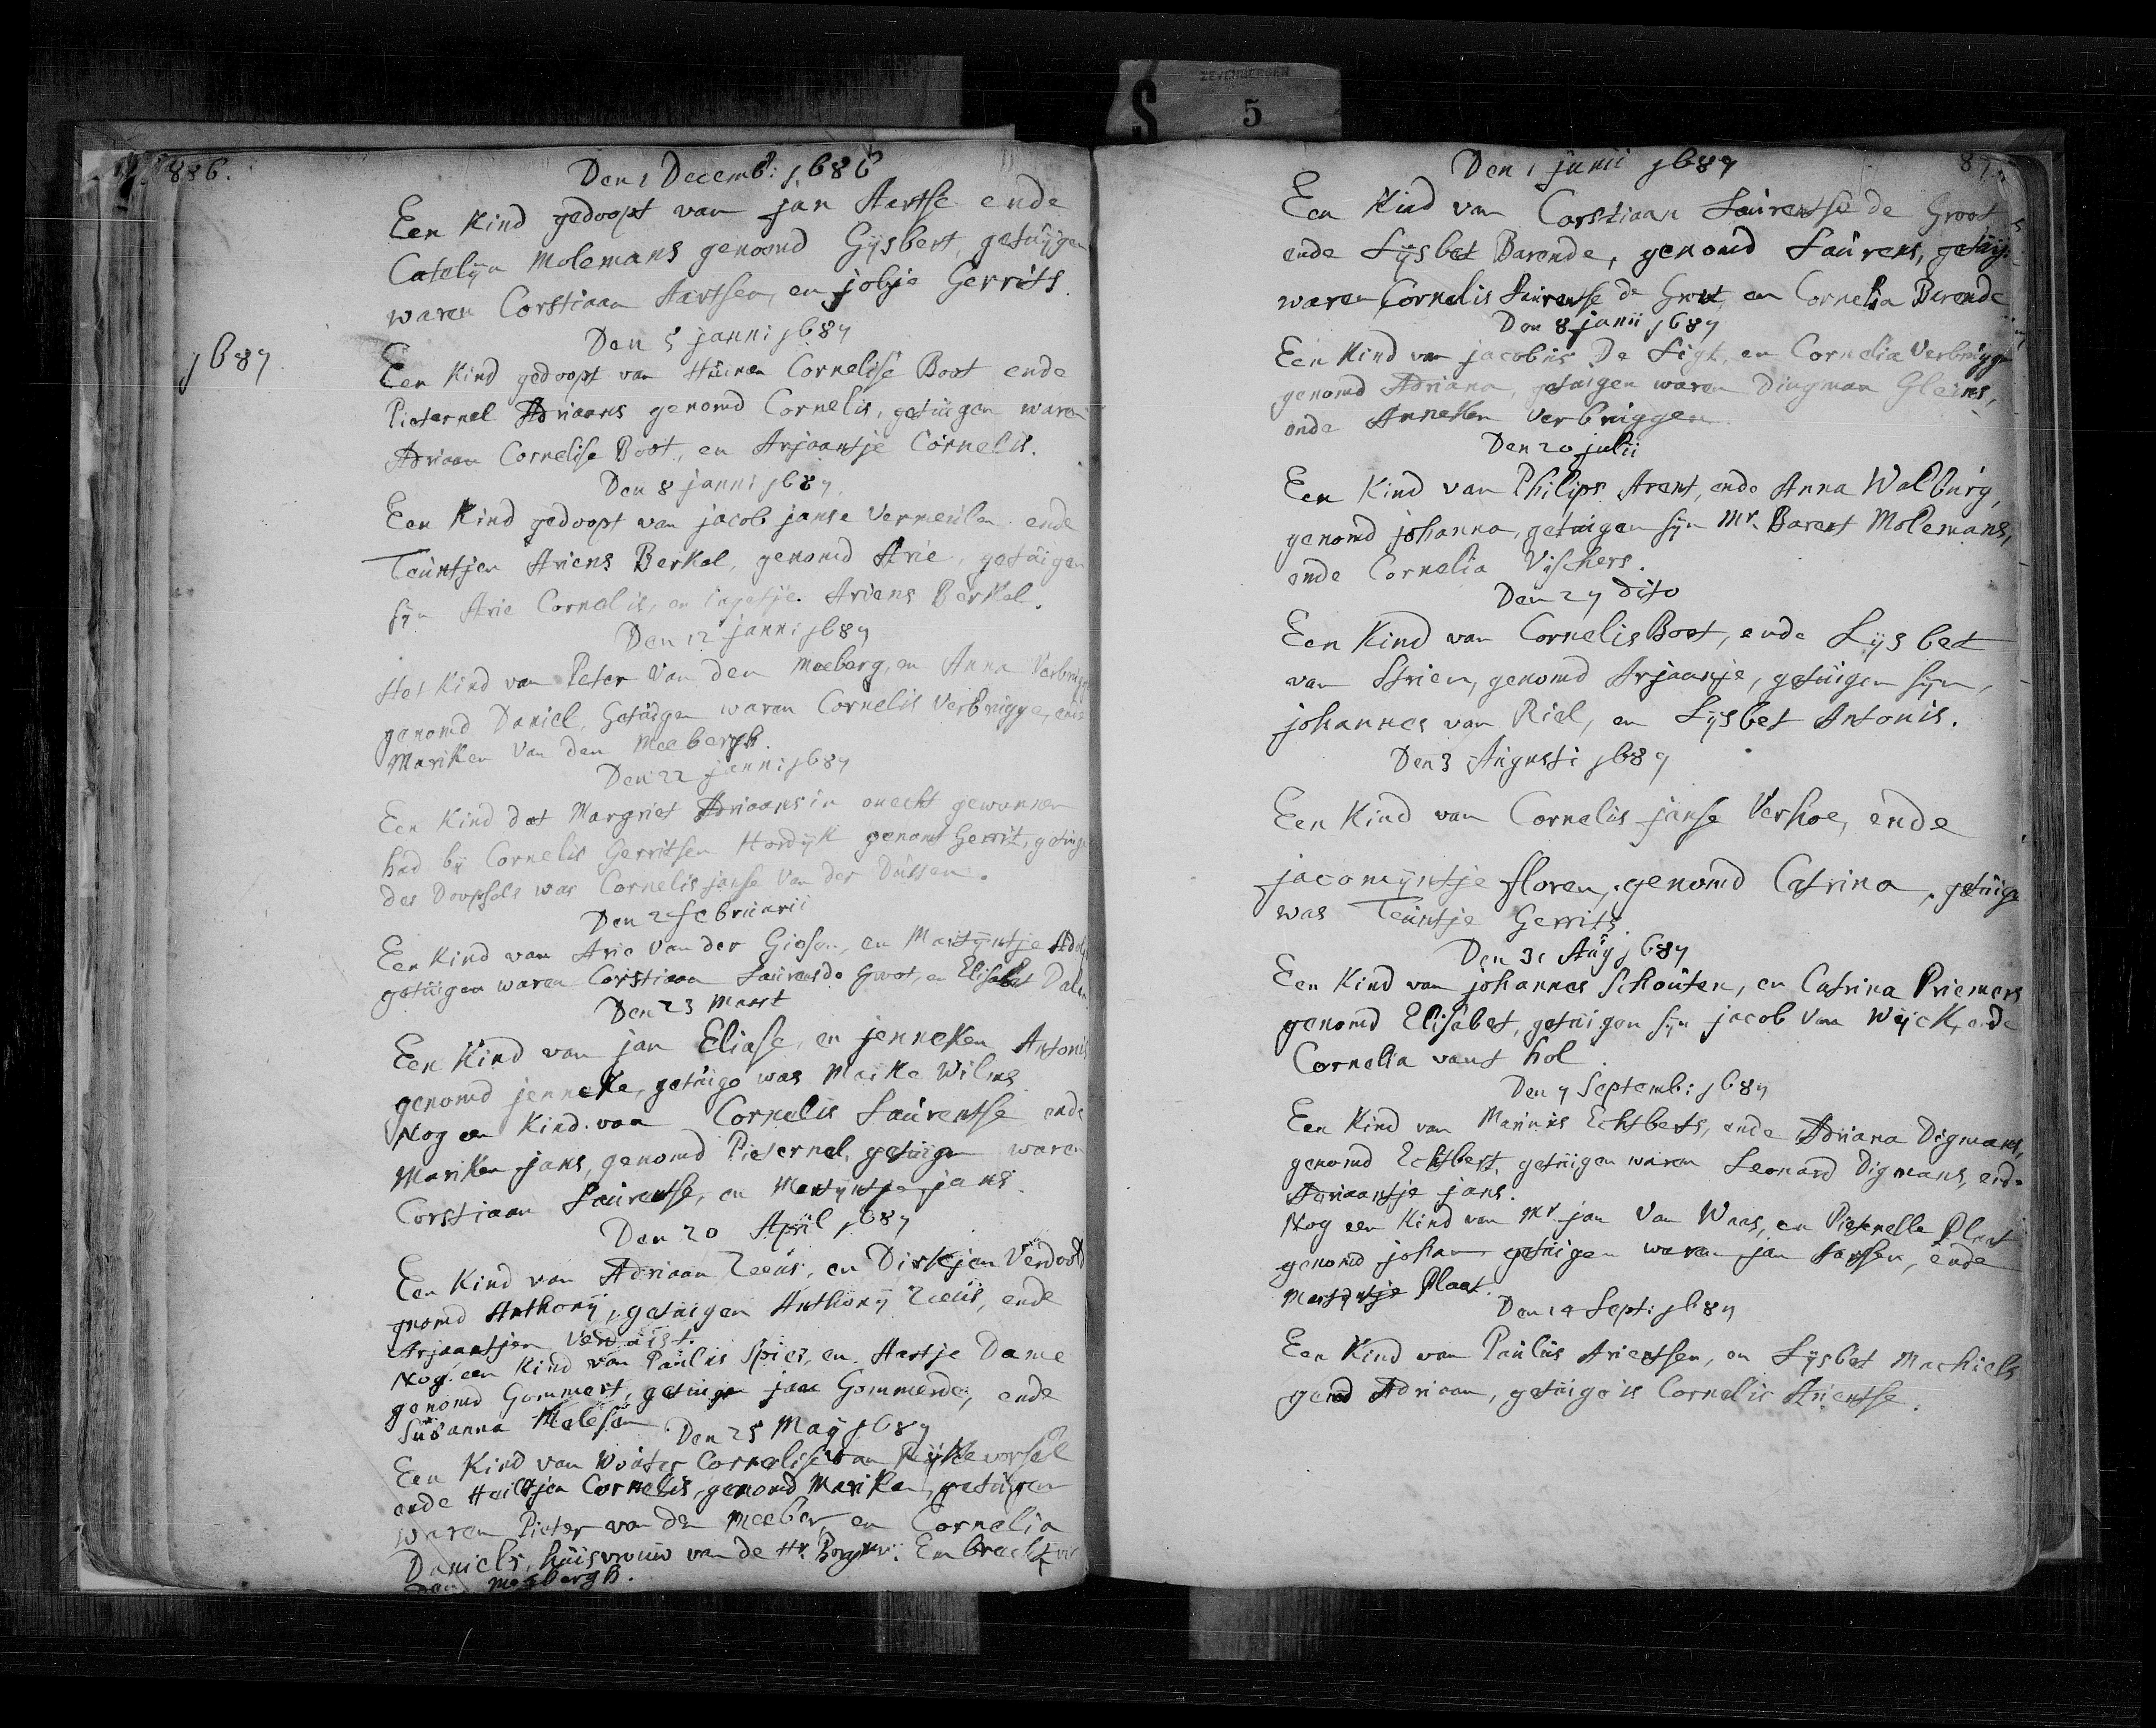 ZEVENBERGEN
S 5
886.
Den 1 Decemb: 1686
Een Kind gedoopt van jan Aertse ende
Catelijn Molemans genoomd Gijsbert, getuijgen
waren Corstiaan Aartsen, en jobje Gerrits.
1687
Den 5 janni 1687
Een Kind gedoopt van Huinen Cornelise Boot ende
Pieternel Adriaans genomd Cornelis, getuigen waren
Adriaan Cornelise Boot, en Arjaantje Cornelis.
Den 8 janni 1687.
Een Kind gedoopt van jacob janse Vermeulen ende
Teuntjen Ariens Berkel, genomd Arie, getuigen
sijn Arie Cornelis, en Ariens Berkel.
Den 12 janni 1687
Het Kind van Peter Van den Meeberg, en Anna Verbrugg
genomd Daniel, Getuigen waren Cornelis Verbrugge, ende
Mariken Van den Meebergh.
Den 22 janni 1687
Een Kind dat Margriet Adriaans in onecht gewonnen
had bij Cornelis Gerritsen Hordijk genomt Gerrit, getuig
des Doopsels was Cornelis janse Van der Dussen.
Den 2 februarii
Een Kind van Arie Van der Giesen, en Martijntje
getuigen waren Corstiaan Laurens de Groot, en Elisabet
Den 23 Maart
Een Kind van jan Eliase, en jenneken Antonis
genomd jenneke, getuige was Maike Wilms
Nog een Kind van Cornelis Laurentse ende
Mariken jans, genomd Pieternel, getuigen waren
Corstiaan Laurentse, en Martijntje jans.
Den 20 April 1687
Een Kind van Adriaan Zeeus, en Dirkjen Verdoost
gnomd Anthonij, getuigen Anthonij Zeeus, ende
Arjaantjen
Nog een Kind van Paulus Spies, en Aartje Dame
genomd Gommert, getuigen jan Gommerde, ende
Susanna
Den 25 Maij 1687
Een Kind van Wouter Cornelise van Rijckevorsel
ende Heiltjen Cornelis, genomd Mariken, getuigen
waren Pieter van den Meeber, en Cornelia
Daniels, huisvrouw van de Hr.
Meebergh.
87.
Den 1 junii 1687
Een Kind van Corstiaan Laurentse de Groot
ende Lijsbet Barende, genomd Laurens, getuij
waren Cornelis Laurentse de Groot, en Cornelia Barende
Den 8 junii 1687
Een Kind van jacobus De Ligt, en Cornelia Verbrugge
genomd Adriana, getuigen waren Dingman Gleins,
ende Anneken Verbruggen
Den 20 julii
Een Kind van Philips Arent, ende Anna Walburg,
genomd johanna, getuigen sijn Mr. Barent Molemans,
ende Cornelia Vischers.
Den 27 dito
Een Kind van Cornelis Boot, ende Lijsbet
van Strien, genomd Arjaantje, getuigen sijn,
johannes van Riel, en Lijsbet Antonis.
Den 3 Augusti 1687
Een Kind van Cornelis janse Verhoe, ende
jacomijntje floren, genomd Catrina, getuige
was Teuntje Gerrits
Den 31 Aug 1687
Een Kind van johannes Schouten, en Catrina Priemers
genomd Elisabet, getuigen sijn jacob Van Wijck, ende
Cornelia vant hol.
Den 7 Septemb: 1687
Een Kind van Marinus Echtberts, ende Adriana Digmans,
genomd Echtbert, getuigen waren Leonard Digmans, ende
Adriaantje jans.
Nog een Kind van Mr. jan Van Waas, en Pieternelle Plaat
genomd johan getuigen waren jan Jansen, ende
Martijntje Plaat.
Den 14 Sept: 1687
Een Kind van Paulus Arientsen, en Lijsbet Machiels
genomd Adriaan, getuige is Cornelis Arientse.